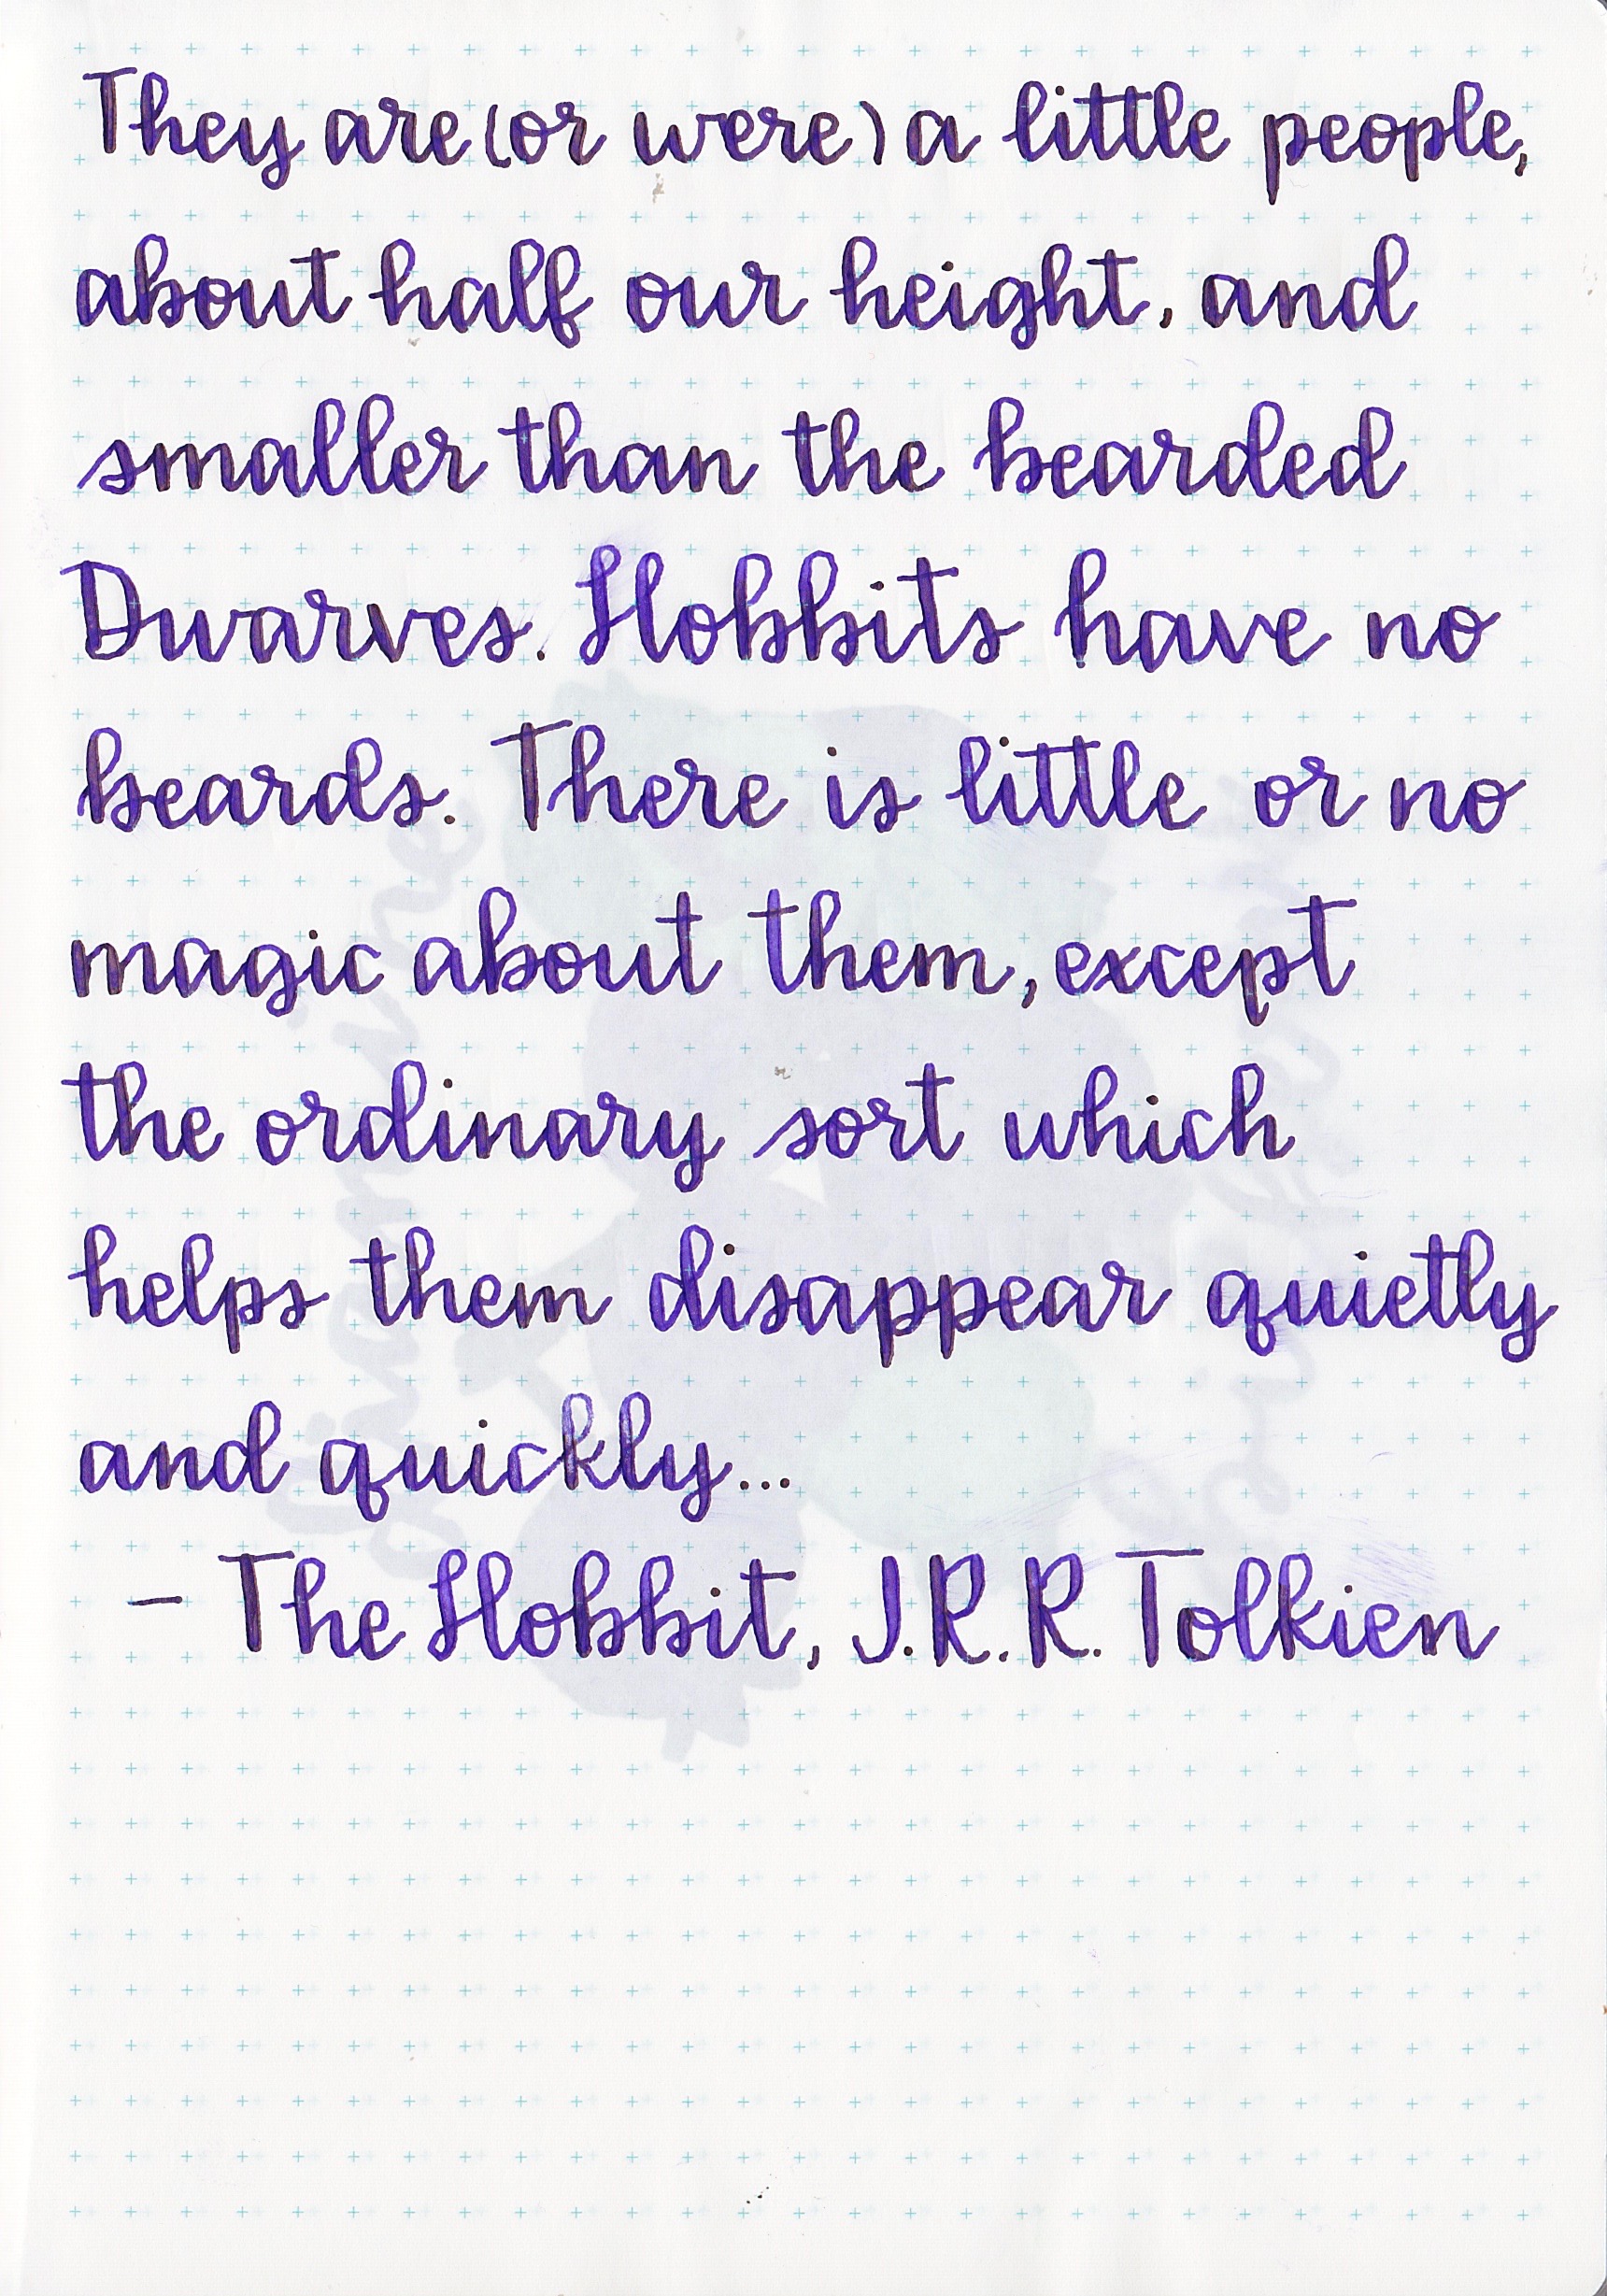 They are (or were) a little people,
about half our height, and
smaller than the bearded
Dwarves. Hobbits have no
beards. There is little or no
magic about them, except
the ordinary sort which
helps them disappear quietly
and quickly...
- The Hobbit, J.R.R. Tolkien